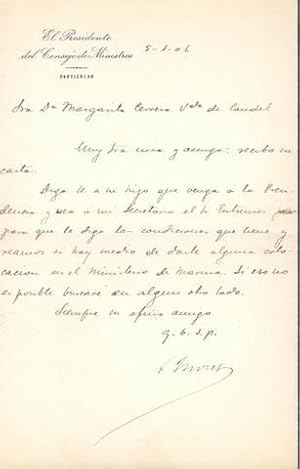 El Presidente
del Consejo de Ministros
PARTICULAR
5-1-06
Sra Da Margarita Cervera Vda de Caudel
Muy Sra mia y amiga: recibo su
carta.
Diga U. a su hijo que venga a la Presi
dencia y vea a mi Secretario el Sr
para que le diga las condiciones que tiene y
veamos si hay medio de darle alguna colo
cacion en el Ministerio de Marina. Si eso no
es posible buscaré en algun otro lado.
Siempre su afmo amigo
q. b. s. p.
S Moret